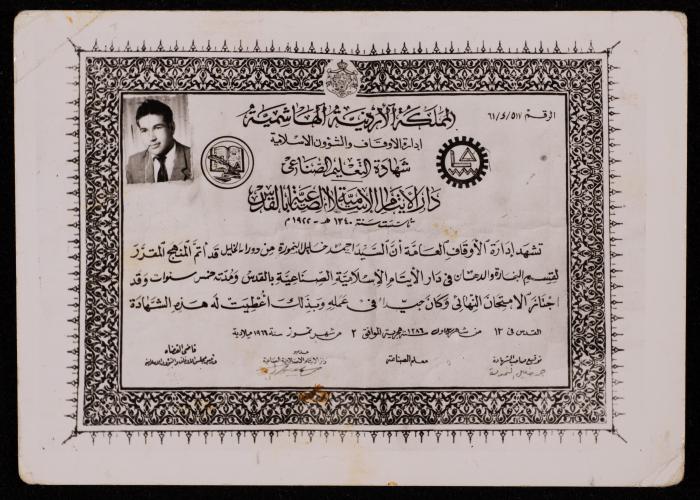 المملكة الأردنية الهاشمية
الرقم
إدارة الأوقاف والشؤون الإسلامية
شهادة التعليم الصناعي
دار الأيتام الإسلامية الصناعية بالقدس
تأسست سنة ١٣٤٠ هـ - ١٩٢٢ م
تشهد إدارة الأوقاف العامة أن السيد احمد خليل من دورا الخليل قد أتم المنهج المقرر
لقسم النجارة والدهان في دار الأيتام الإسلامية الصناعية بالقدس ومدته خمس سنوات وقد
اجتاز الامتحان النهائي وكان جيدا في عمله وبذلك أعطيت له هذه الشهادة
القدس في ١٣ من شهر ١٣٨٦ هجرية الموافق ٢ من شهر تموز سنة ١٩٦٦ ميلادية
توقيع صاحب الشهادة
معلم الصناعة
مدير
دار الأيتام الإسلامية الصناعية
قاضي القضاة